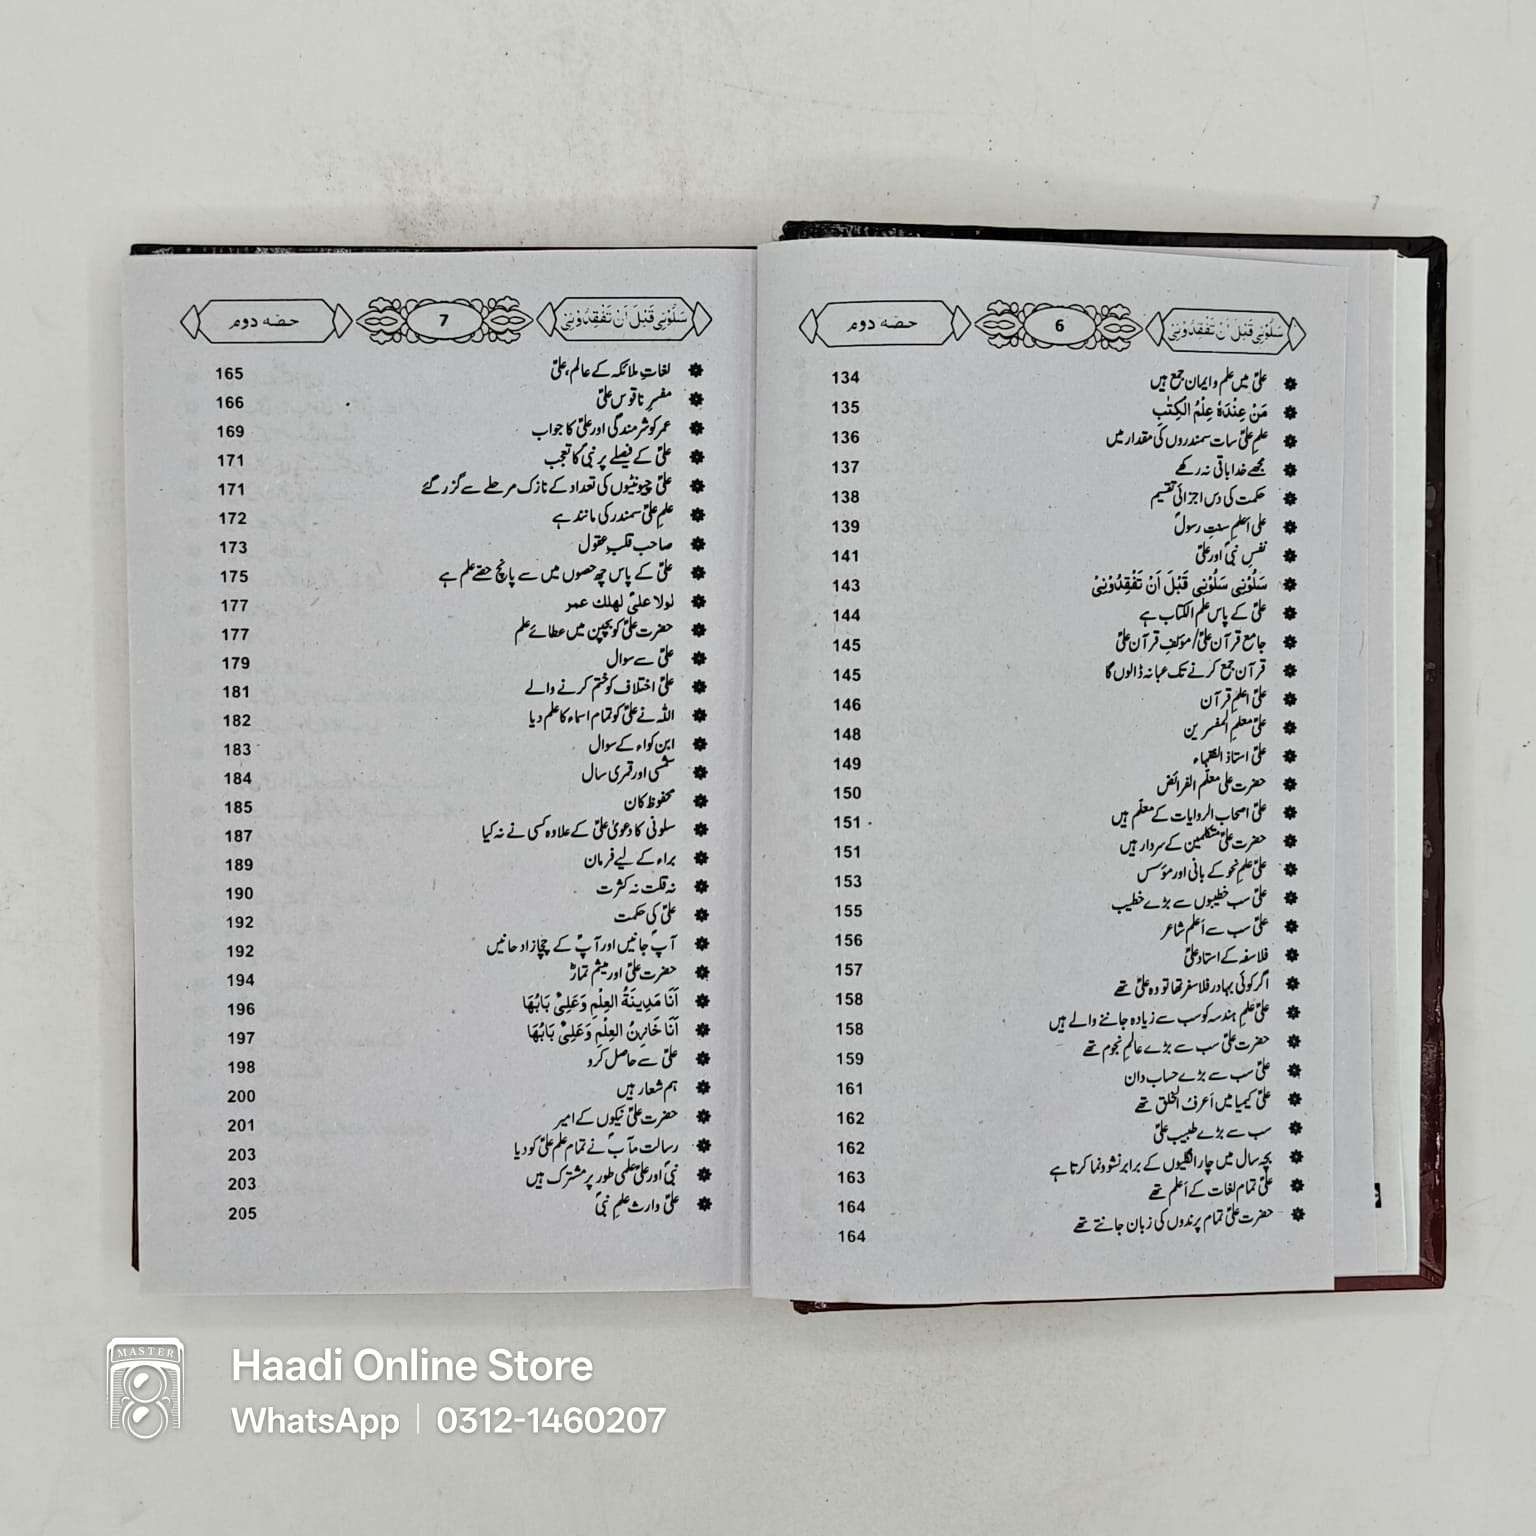 سَلُوْنِی قَبْلَ اَنْ تَفْقِدُوْنِیْ 6 حصّہ دوم
علیؑ میں علم و ایمان جمع ہیں 134
مَنْ عِنْدَهٗ عِلْمُ الْكِتٰبِ 135
علمِ علیؑ سات سمندروں کی مقدار میں 136
مجھے خدا باقی نہ رکھے 137
حکمت کی دس اجزائی تقسیم 138
علی اَعلمِ سنتِ رسولؐ 139
نفسِ نبیؐ اور علیؑ 141
سَلُوْنِی سَلُوْنِی قَبْلَ اَنْ تَفْقِدُوْنِیْ 143
علیؑ کے پاس علم الکتاب ہے 144
جامع قرآن علیؑ/مؤلفِ قرآن علیؑ 145
قرآن جمع کرنے تک عبا نہ ڈالوں گا 145
علیؑ اعلمِ قرآن 146
علیؑ معلم المفسرین 148
علیؑ استاذ الفقہاء 149
حضرت علی معلّم الفرائض 150
علیؑ اصحاب الروایات کے معلّم ہیں 151
حضرت علیؑ متکلمین کے سردار ہیں 151
علیؑ علمِ نحو کے بانی اور مؤسس 153
علیؑ سب خطیبوں سے بڑے خطیب 155
علیؑ سب سے اَعلم شاعر 156
فلاسفہ کے استاد علیؑ 157
اگر کوئی بہادر فلاسفر تھا تو وہ علیؑ تھے 158
علیؑ علمِ ہندسہ کو سب سے زیادہ جاننے والے ہیں 158
حضرت علیؑ سب سے بڑے عالمِ نجوم تھے 159
علیؑ سب سے بڑے حساب دان 161
علیؑ کیمیا میں اَعرف الخلق تھے 162
سب سے بڑے طبیب علیؑ 162
بچہ سال میں چار انگلیوں کے برابر نشوونما کرتا ہے 163
علیؑ تمام لغات کے اَعلم تھے 164
حضرت علیؑ تمام پرندوں کی زبان جانتے تھے 164
سَلُوْنِی قَبْلَ اَنْ تَفْقِدُوْنِیْ 7 حصّہ دوم
لغاتِ ملائکہ کے عالم، علیؑ 165
مفسرِ ناقوس علیؑ 166
عمر کو شرمندگی اور علیؑ کا جواب 169
علیؑ کے فیصلے پر نبیؐ کا تعجب 171
علیؑ چیونٹیوں کی تعداد کے نازک مرحلے سے گزر گئے 171
علمِ علیؑ سمندر کی مانند ہے 172
صاحب قلبِ عقول 173
علیؑ کے پاس چھ حصوں میں سے پانچ حصّے علم ہے 175
لولا علیؑ لھلك عمر 177
حضرت علیؑ کو بچپن میں عطائے علم 177
علیؑ سے سوال 179
علیؑ اختلاف کو ختم کرنے والے 181
اللہ نے علیؑ کو تمام اسماء کا علم دیا 182
ابن کواء کے سوال 183
شمسی اور قمری سال 184
محفوظ کان 185
سلونی کا دعویٰ علیؑ کے علاوہ کسی نے نہ کیا 187
براء کے لیے فرمان 189
نہ قلت نہ کثرت 190
علیؑ کی حکمت 192
آپؐ جانیں اور آپؐ کے چچازاد جانیں 192
حضرت علیؑ اور میثم تمارؓ 194
اَنَا مَدِينَةُ العِلْمِ وَعَلِیٌّ بَابُهَا 196
اَنَا خَازِنُ العِلْمِ وَعَلِیٌّ بَابُهَا 197
علیؑ سے حاصل کرو 198
ہم شعار ہیں 200
حضرت علیؑ نیکوں کے امیر 201
رسالت مآبؐ نے تمام علم علیؑ کو دیا 203
نبیؐ اور علیؑ علمی طور پر مشترک ہیں 203
علیؑ وارث علمِ نبیؐ 205
MASTER
Haadi Online Store
WhatsApp | 0312-1460207